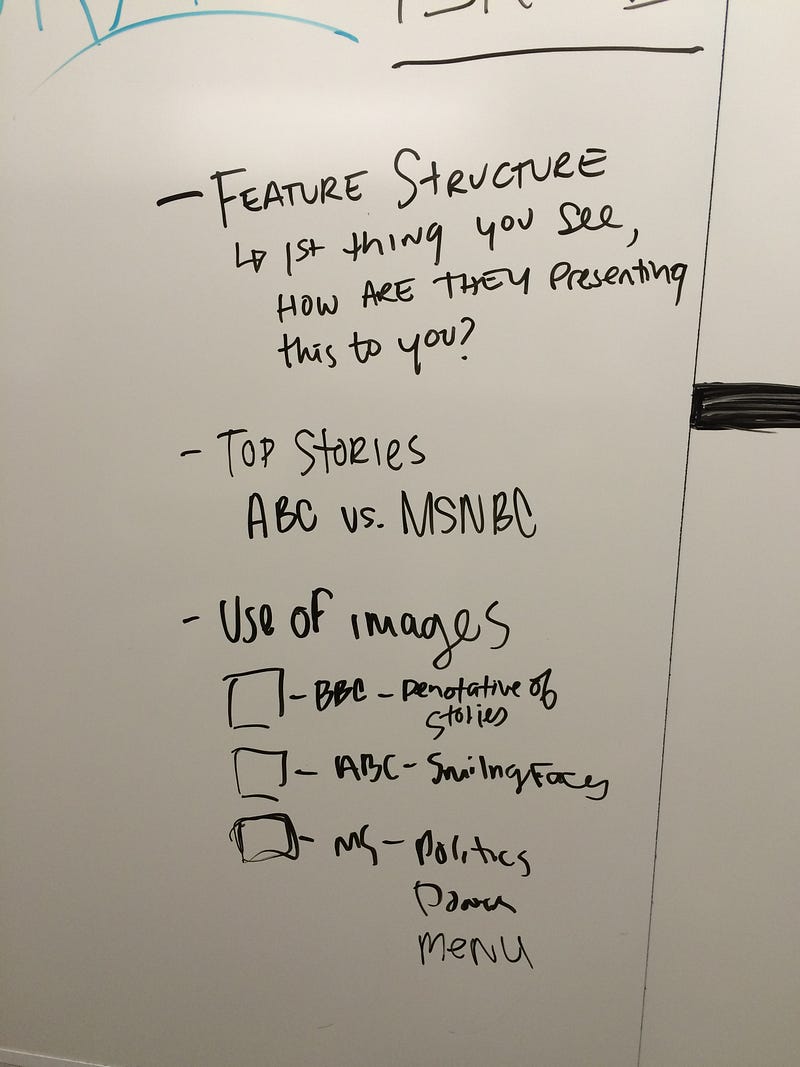 — FEATURE STRUCTURE
↳ 1st thing you see,
HOW ARE THEY Presenting
this to you?
- TOP STORIES
ABC vs. MSNBC
- Use of images
- BBC - Denotative of
stories
- ABC - Smiling Faces
- MS - Politics
MENU